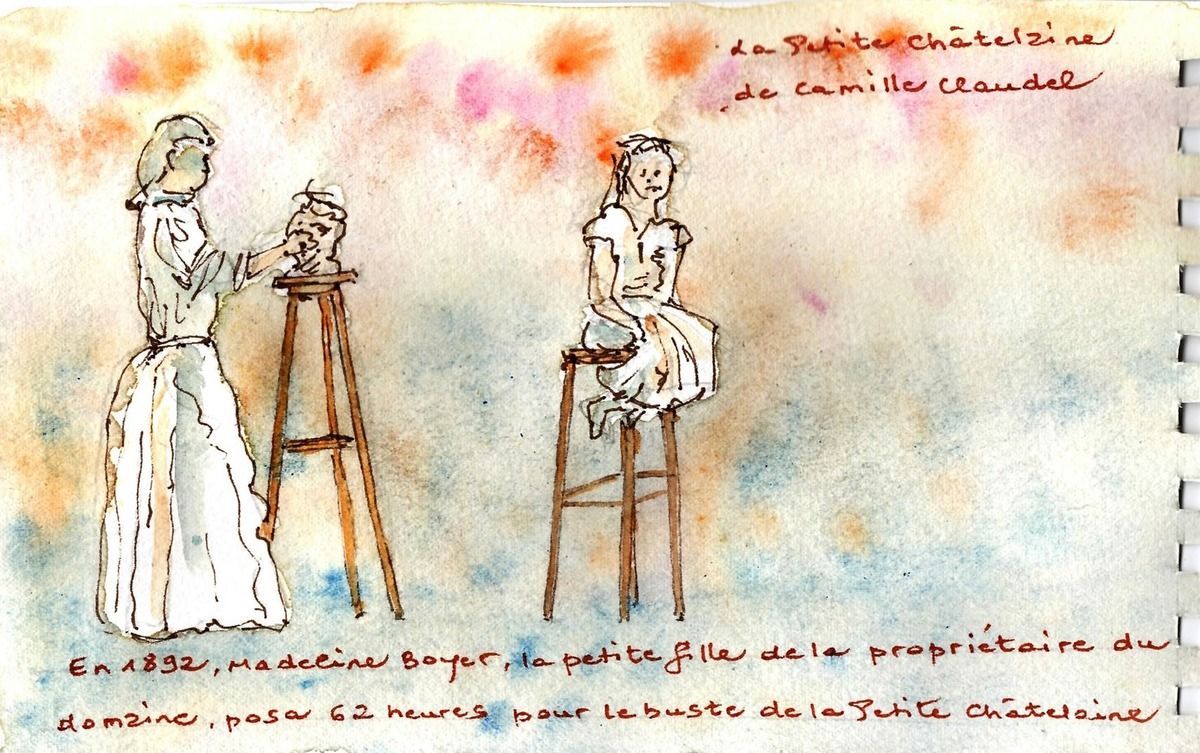 La Petite Châtelaine
de Camille Claudel
En 1892, Madeline Boyer, la petite fille de la propriétaire du
domaine, posa 62 heures pour le buste de la Petite Châtelaine